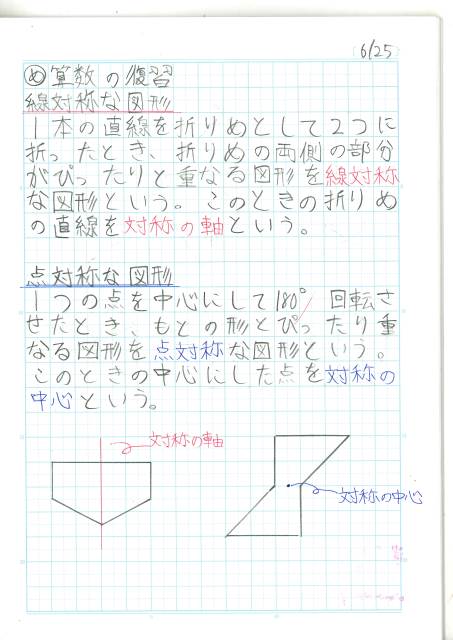 6/25
め 算数の復習
線対称な図形
1本の直線を折りめとして2つに
折ったとき、折りめの両側の部分
がぴったりと重なる図形を線対称
な図形という。このときの折りめ
の直線を対称の軸という。
点対称な図形
1つの点を中心にして180°回転さ
せたとき、もとの形とぴったり重
なる図形を点対称な図形という。
このときの中心にした点を対称の
中心という。
対称の軸
対称の中心